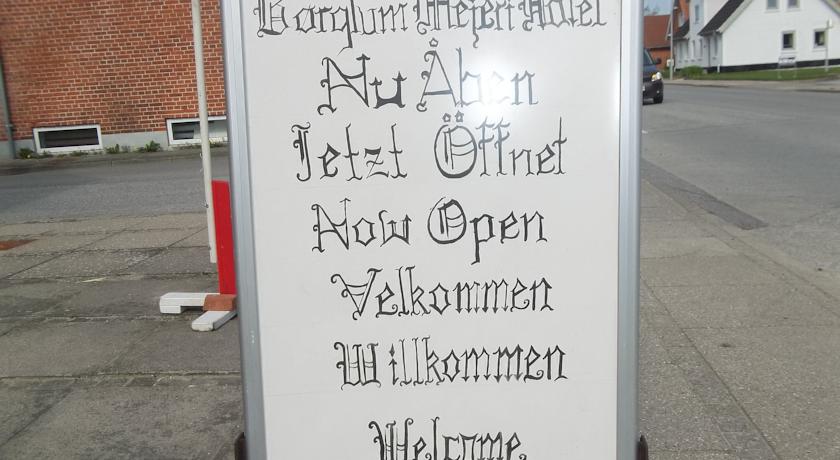 Børglum Mejeri Hotel
Nu Åben
Jetzt Öffnet
Now Open
Velkommen
Willkommen
Welcome